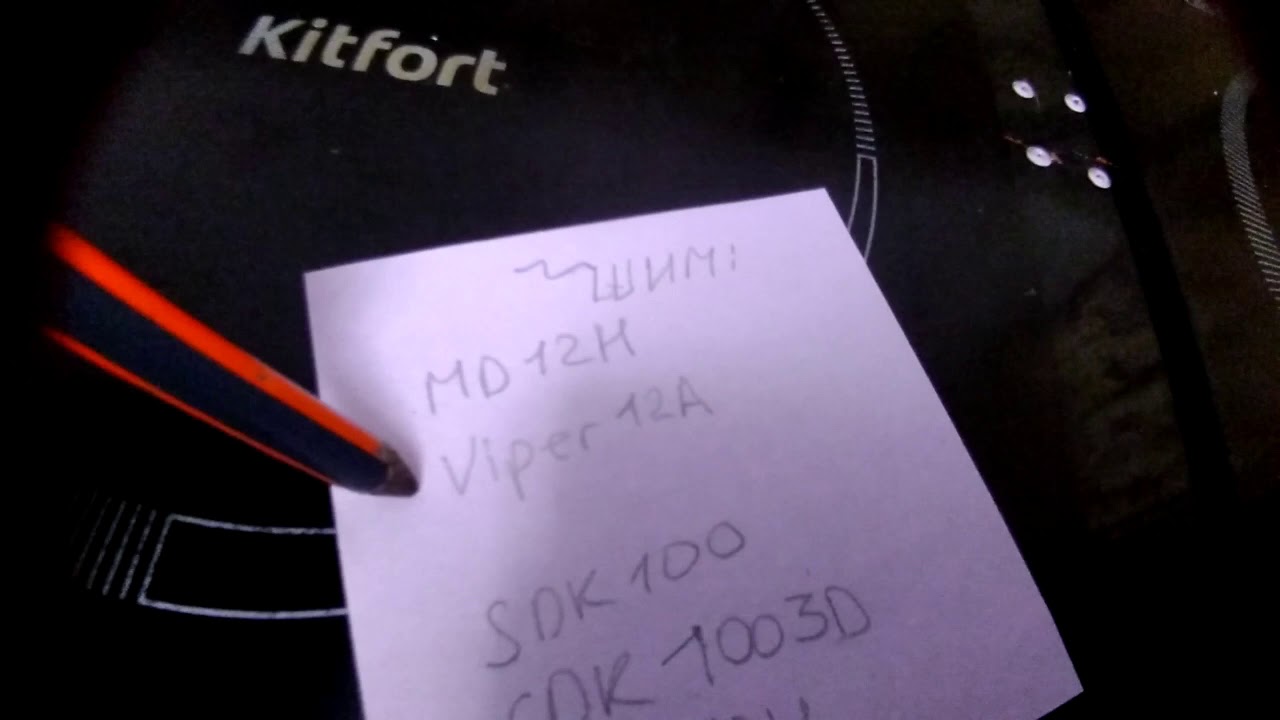 Kitfort
ШИМ:
MD12H
Viper 12A
SDK 100
SDK 1003D